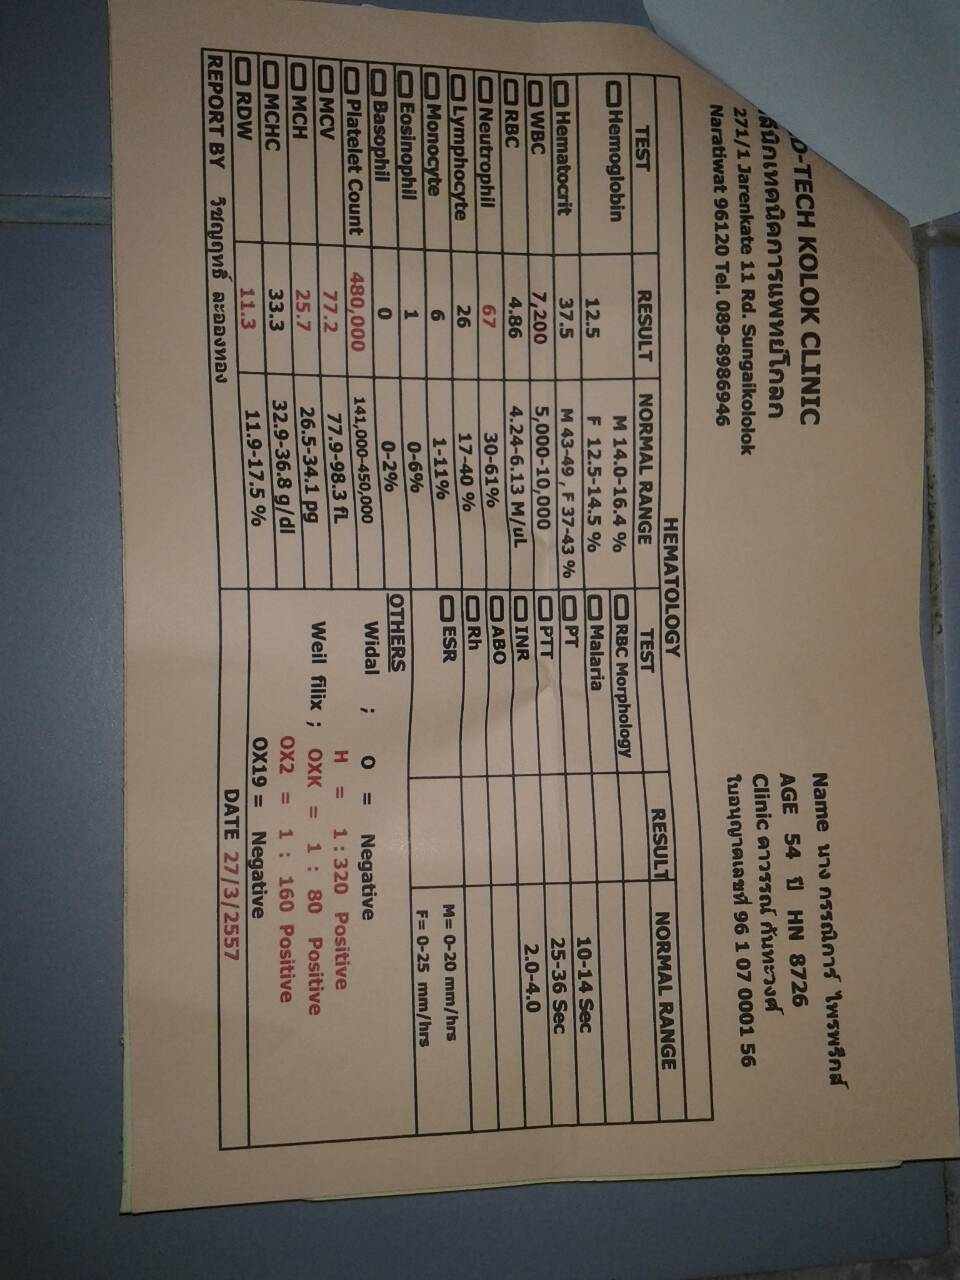 D-TECH KOLOK CLINIC
ลินิกเทคนิคการแพทย์โกลก
271/1 Jarenkate 11 Rd. Sungaikololok
Naratiwat 96120 Tel. 089-8986946
Name นาง กรรณิการ์ ไพรพริกส์
AGE 54 ปี HN 8726
Clinic ดาวรรณ์ กันทะวงศ์
ใบอนุญาตเลขที่ 96 1 07 0001 56
HEMATOLOGY
TEST RESULT NORMAL RANGE TEST RESULT NORMAL RANGE
Hemoglobin 12.5 M 14.0-16.4 % F 12.5-14.5 % RBC Morphology
Malaria
Hematocrit 37.5 M 43-49 , F 37-43 % PT 10-14 Sec
WBC 7,200 5,000-10,000 PTT 25-36 Sec
RBC 4.86 4.24-6.13 M/uL INR 2.0-4.0
Neutrophil 67 30-61% ABO
Lymphocyte 26 17-40 % Rh
Monocyte 6 1-11% ESR M= 0-20 mm/hrs
Eosinophil 1 0-6% F= 0-25 mm/hrs
Basophil 0 0-2% OTHERS
Platelet Count 480,000 141,000-450,000 Widal ; O = Negative
MCV 77.2 77.9-98.3 fL H = 1:320 Positive
MCH 25.7 26.5-34.1 pg Weil filix ; OXK = 1 : 80 Positive
MCHC 33.3 32.9-36.8 g/dl OX2 = 1 : 160 Positive
RDW 11.3 11.9-17.5 % OX19 = Negative
REPORT BY วิชญฤทธิ์ ละอองทอง DATE 27/3/2557